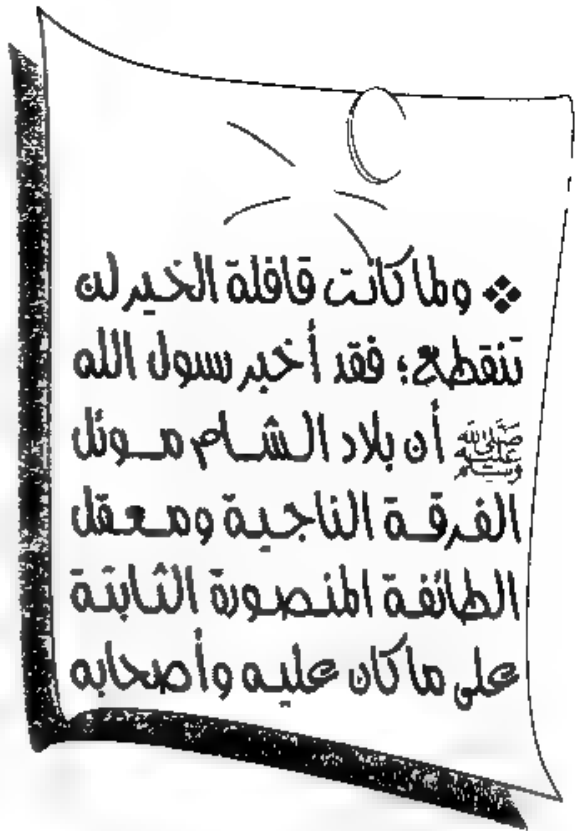 ❖ ولما كانت قافلة الخير لن
تنقطع؛ فقد أخبر رسول الله
ﷺ أن بلاد الشام موئل
الفرقة الناجية ومعقل
الطائفة المنصورة الثابتة
على ما كان عليه وأصحابه